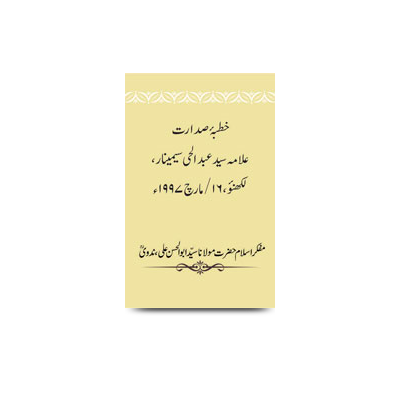 خطبۂ صدارت
علامہ سید عبدالحی سیمینار،
لکھنؤ، ۱۶/مارچ ۱۹۹۷ء
مفکر اسلام حضرت مولانا سید ابوالحسن علی ندویؒ